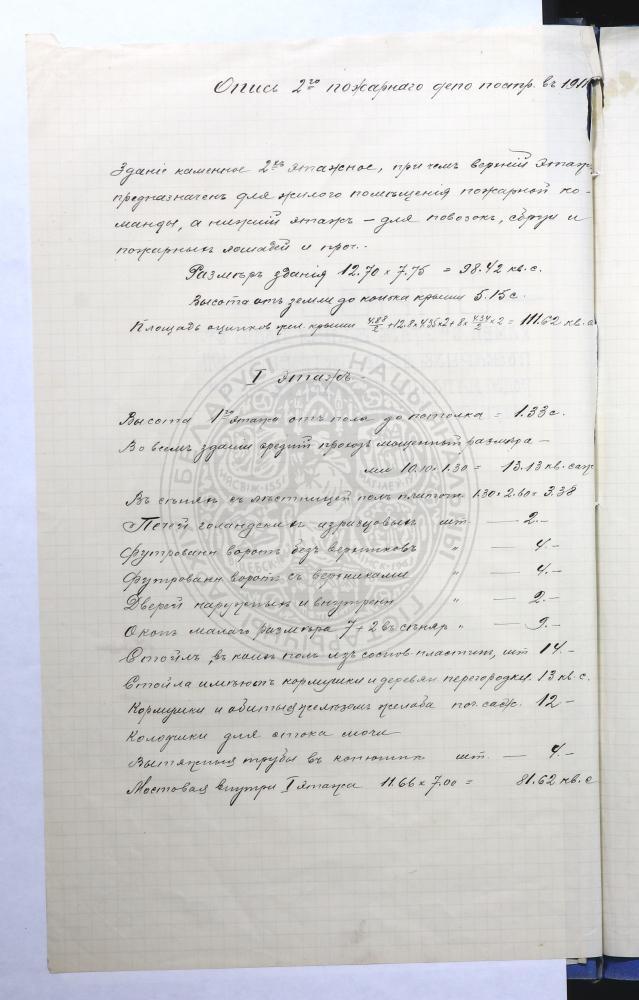 Опись 2го пожарнаго депо постр. въ 191
Зданіе каменное 2хъ этажное, при чемъ верхній этажъ
предназначенъ для жилого помѣщенія пожарной ко-
манды, а нижній этажъ – для повозокъ, сбруи и
пожарныхъ лошадей и проч..
Размѣръ зданія 12.70 x 7.75 = 98.42 кв. с.
Высота отъ земли до конька крыши 5.15 с.
Площадь оцинков. жел. крыши 4.88/2 + 12.8 x 4.35 x 2 + 8 x 4.34/2 x 2 = 111.62 кв. с
I этажъ
Высота 1го этажа отъ пола до потолка = 1.33 с.
Во всемъ зданіи средній проходъ мощенный размѣра –
ми 10.10 x 1.30 = 13.13 кв. саж
Въ сѣняхъ съ лѣстницей полъ плиточ. 1.30 x 2.60 = 3.38
Печей голандскихъ изразцовыхъ шт. — 2.–
Футрованн воротъ безъ верхниковъ " — 4.–
Футрованн воротъ съ верхниками " — 4.–
Дверей наружныхъ и внутрен " — 2.–
Оконъ малаго размѣра 7 + 2 въ сѣняхъ " — 9.–
Стойлъ, въ коихъ полъ изъ соснов. пластинъ, шт 14.–
Стойла имѣютъ кормушки и деревян перегородки. 13 кв. с.
Кормушки и обитыя желѣзомъ желоба пог. саж. 12 –
Колодчики для стока мочи
Вытяжныя трубы въ конюшнѣ шт. — 4.–
Мостовая внутри I этажа 11.66 x 7.00 = 81.62 кв. с